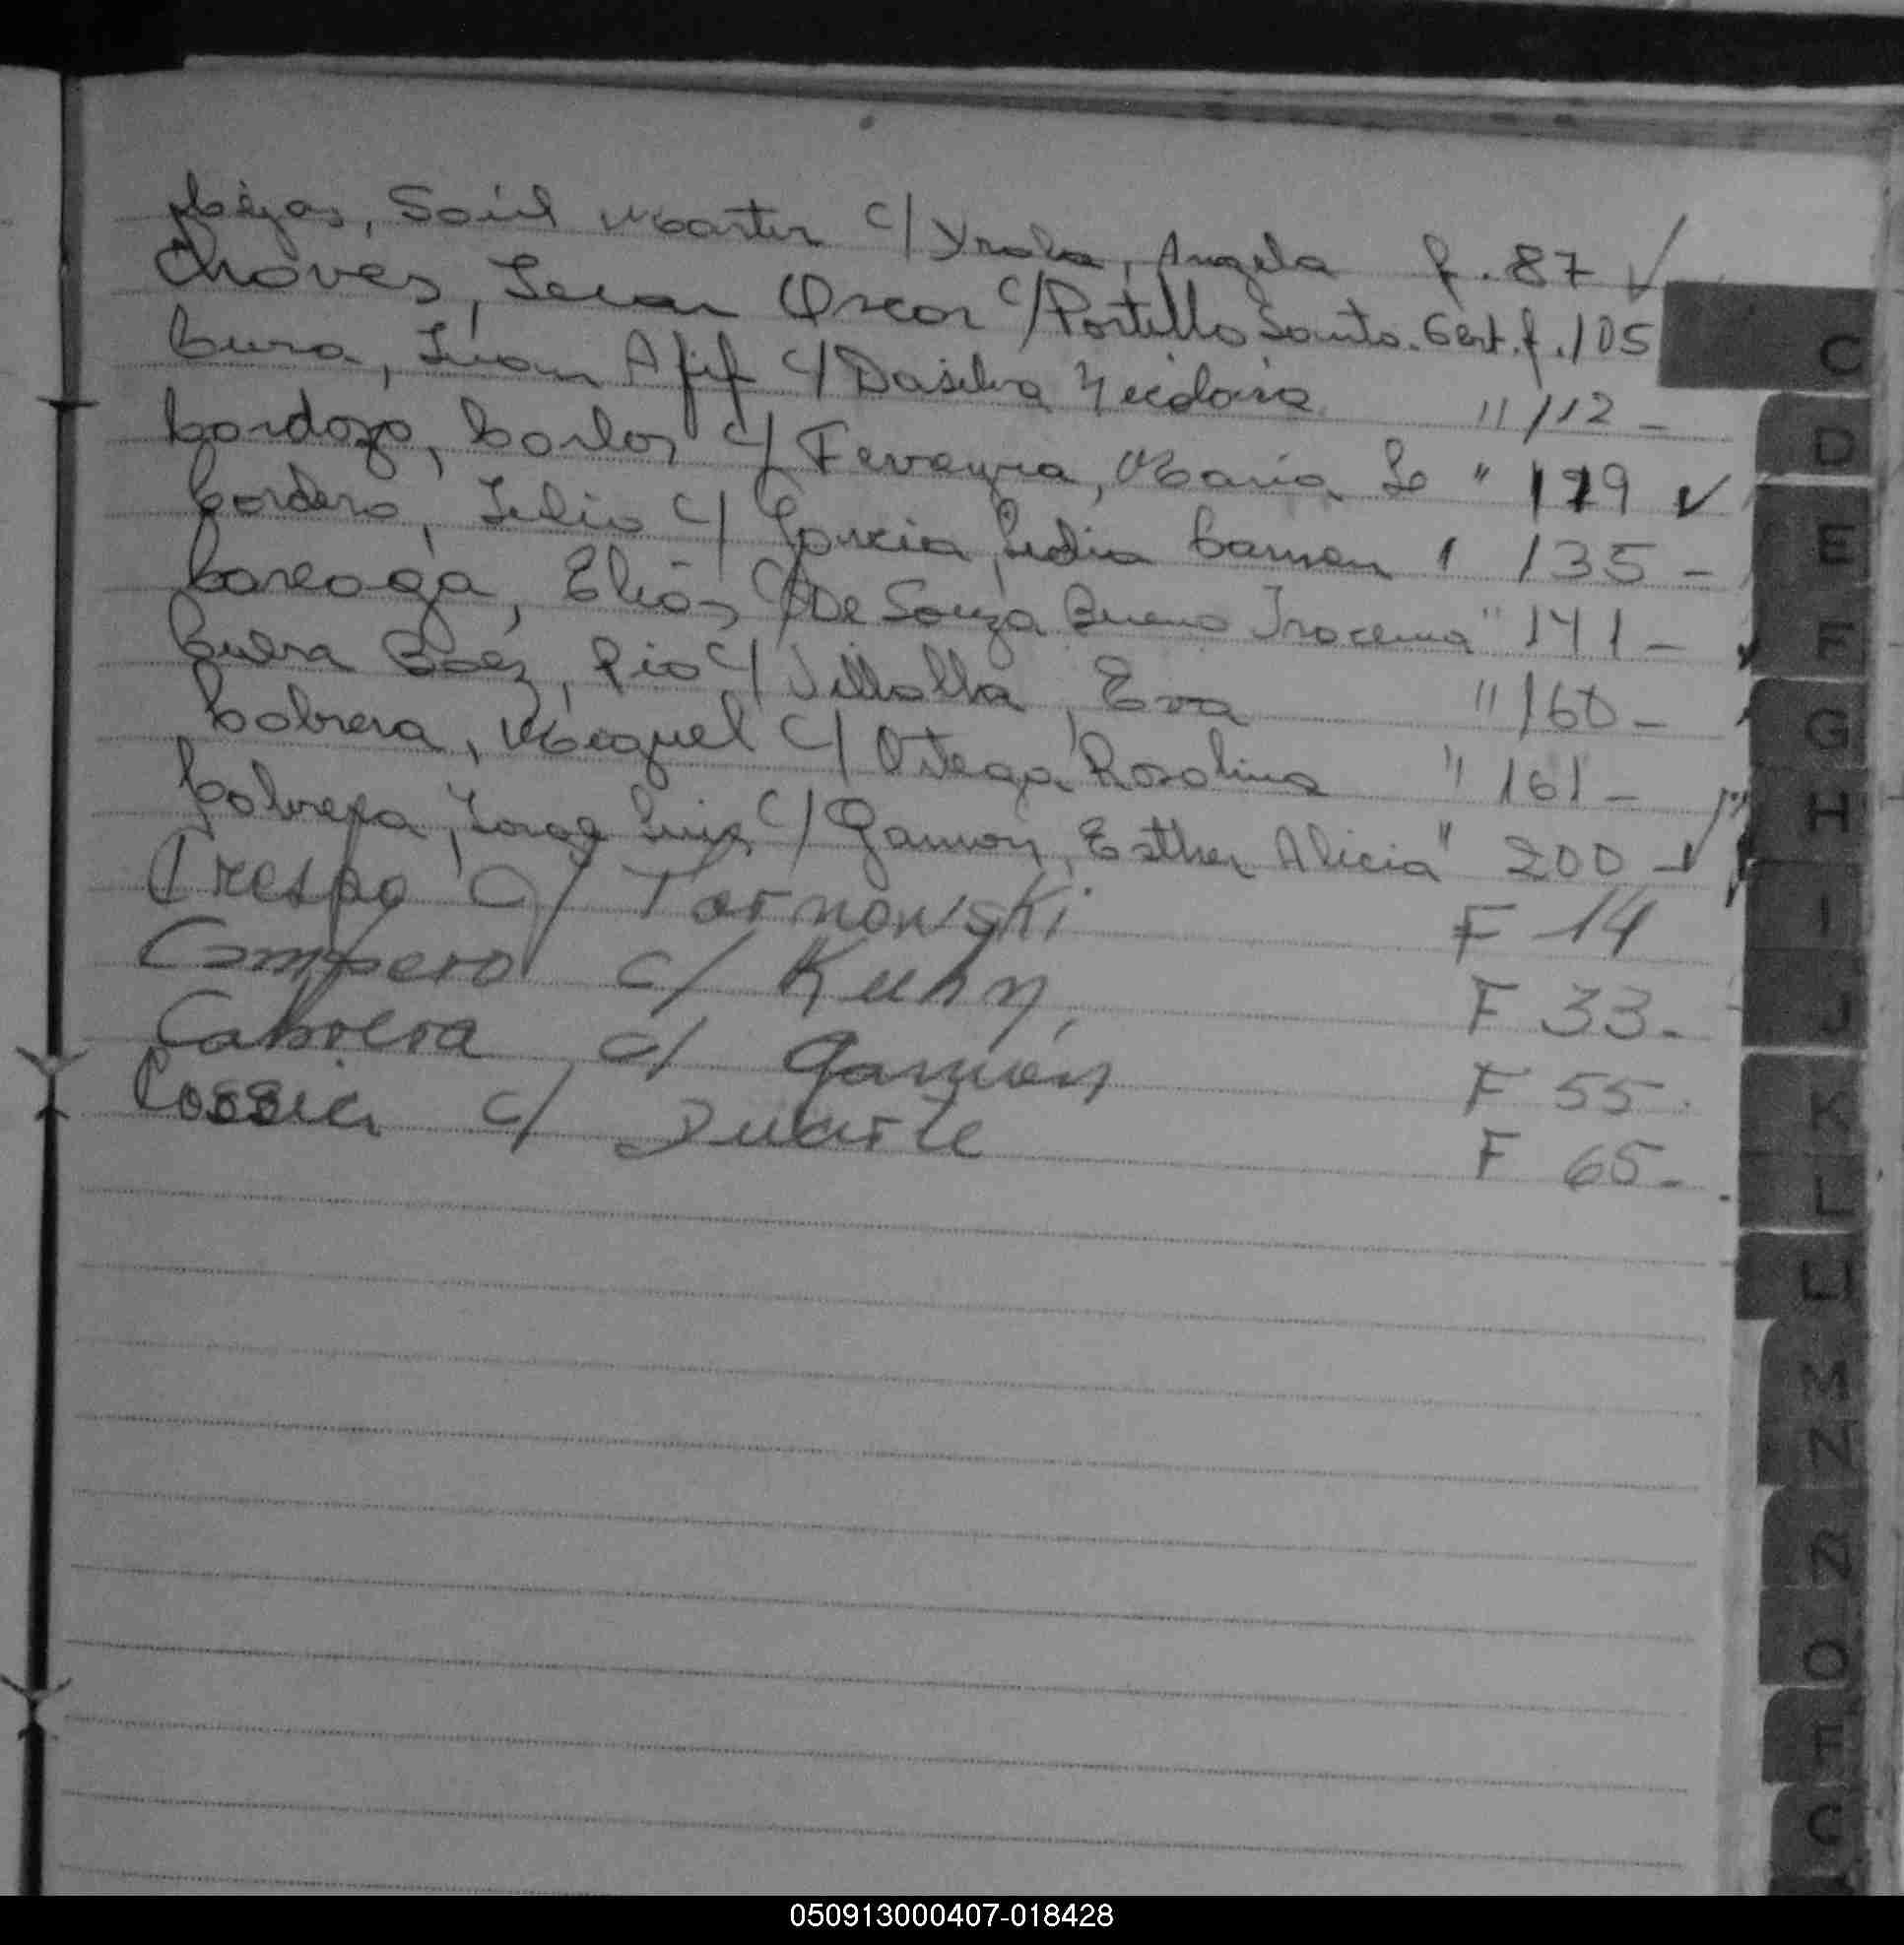 Saúl Martin c/ Angela f. 87 ✓
Chaves, Juan Oscar c/ Portillo Santa. Gert. f. 105
Cura, Juan Afif c/ Dasilva " 112 -
Cardozo, Carlos c/ Ferreyra, Maria " 179 ✓
Cordero, Julio c/ Garcia, Lidia Carmen " 135 -
Elias c/ De Souza Bueno Iracema " 141 -
Baez, Pio c/ Villalba, Eva " 160 -
Cabrera, Miguel c/ Ortega, Rosalina " 161 -
Cabrera, Jorge Luis c/ Gamon, Esther Alicia " 200 - ✓
Crespo c/ Tarnowski F 14
Campero c/ Kuhn, F 33.
Cabrera c/ Gamon F 55.
Cossia c/ Duarte F 65 -
C
D
E
F
G
H
I
J
K
L
LL
M
N
Ñ
O
050913000407-018428